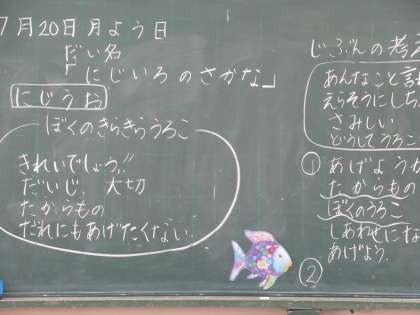 7月20日月よう日
だい名
「にじいろのさかな」
にじうお
ぼくのきらきらうろこ
きれいでしょう!!
だいじ 大切
たからもの
だれにもあげたくない
じぶんの考え
あんなこと言
えらそうにした
さみしい
どうしてうろこ
① あげようか
たからもの
ぼくのうろこ
しあわせにな
あげよう。
②